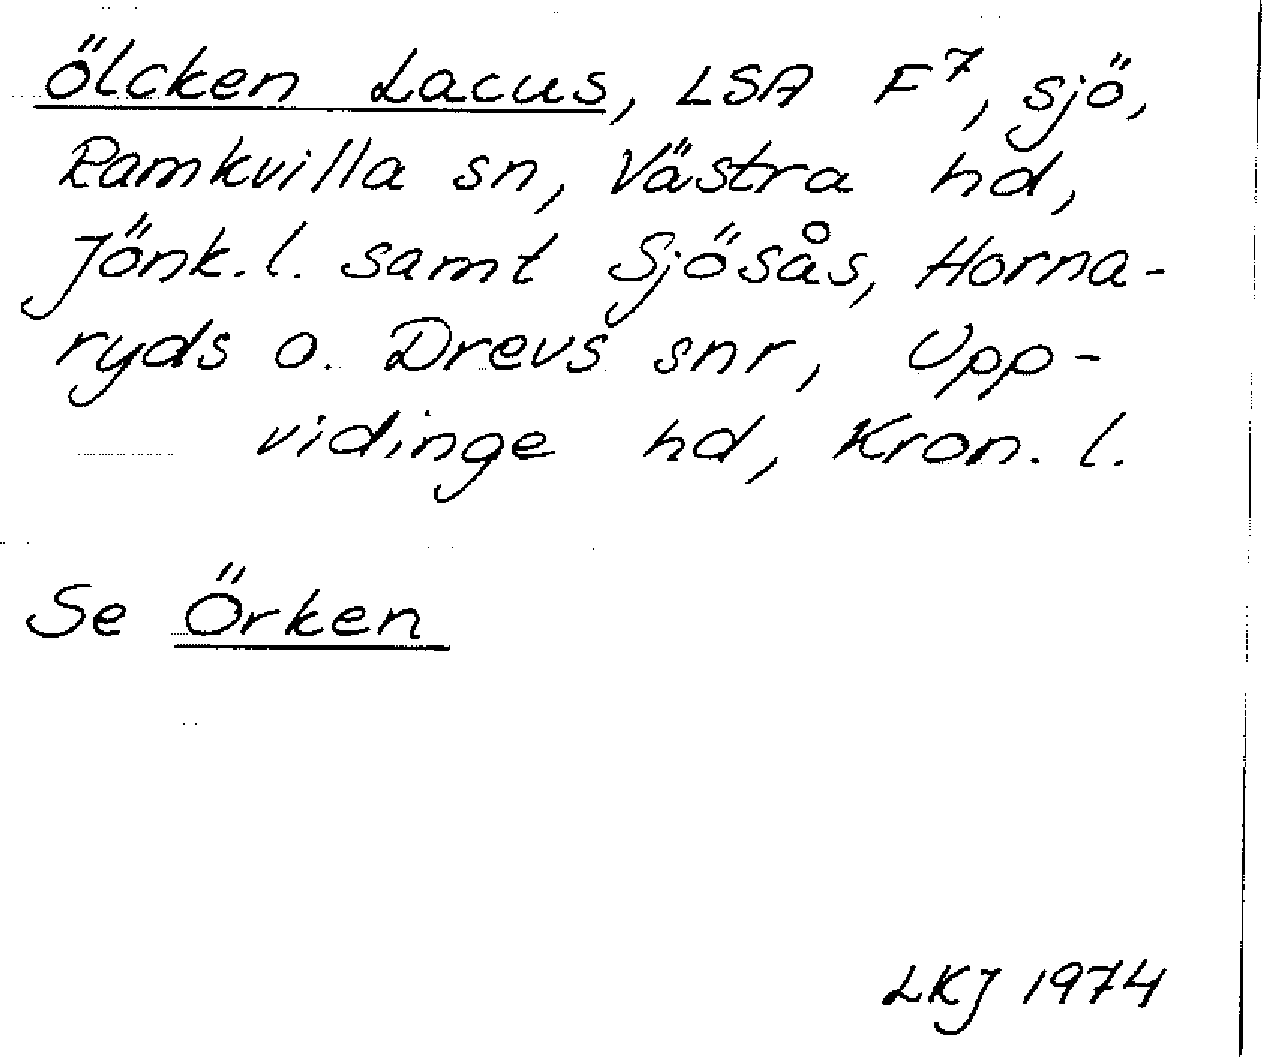 Ölcken Lacus, LSA F⁷, sjö,
Ramkvilla sn, Västra hd,
Jönk. l. samt Sjösås, Horna-
ryds o. Drevs snr, Upp-
vidinge hd, Kron. l.
Se Örken
LKJ 1974